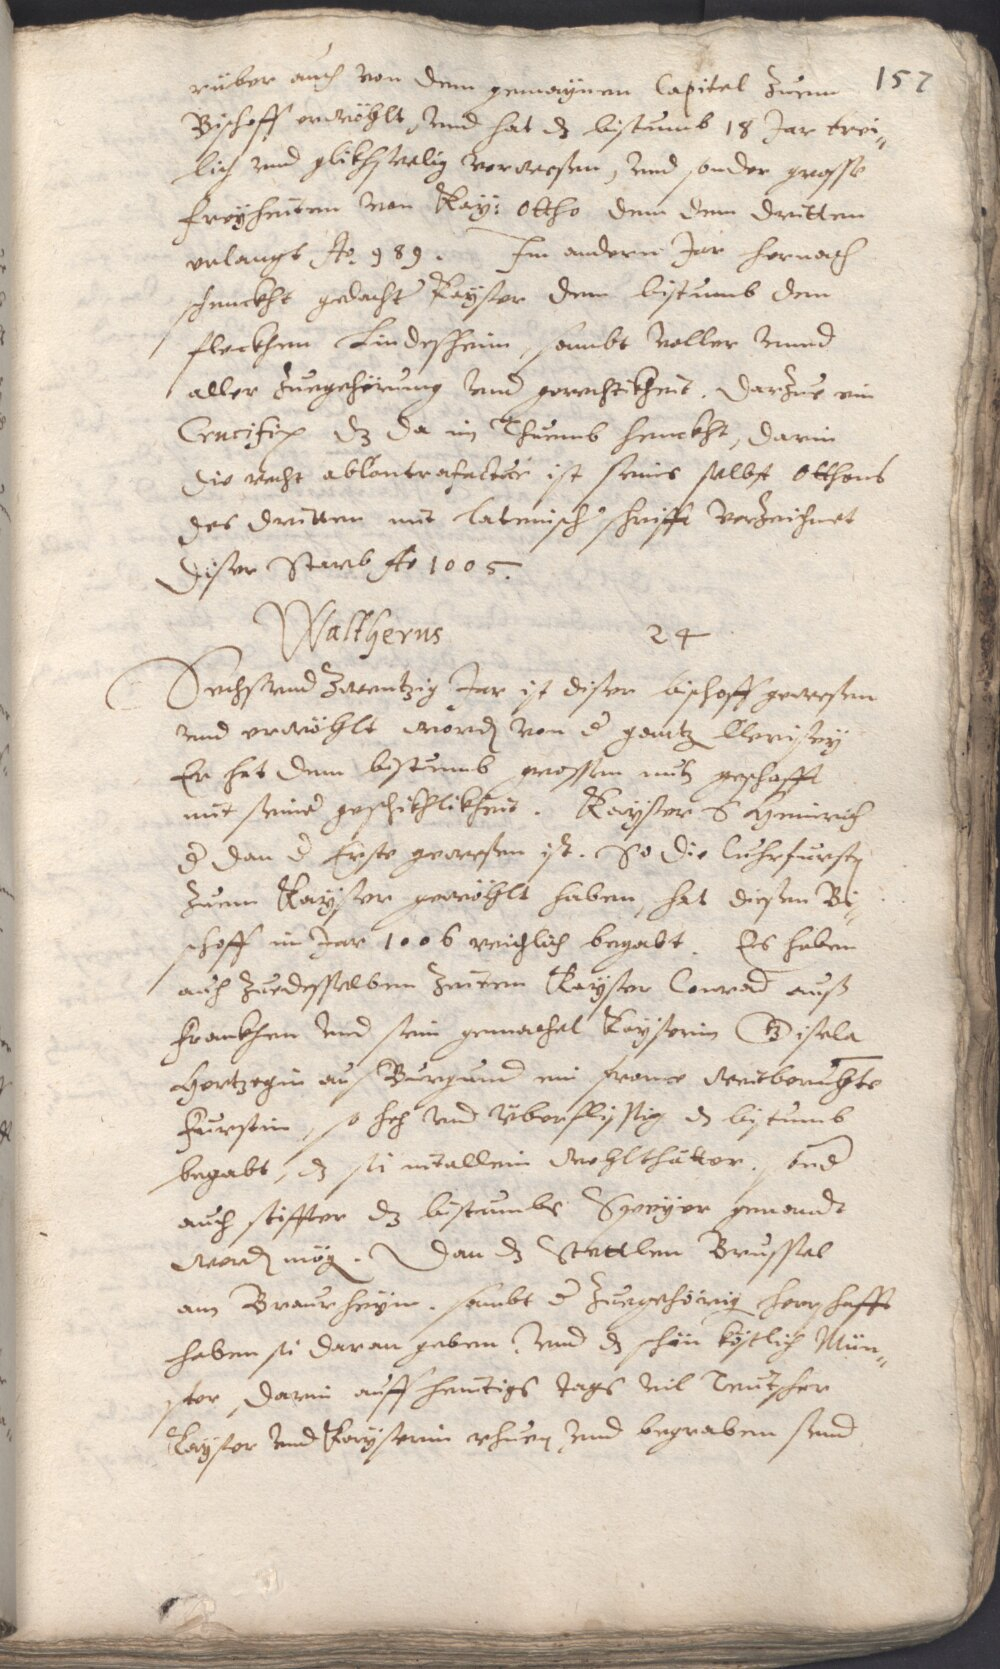 157
rüber auch von dem gemaynen Capitel zuem
Bischoff erwöhlt, und hat dz bistumb 18 Jar trei=
lich und glikhselig verwesen, und sonder grosse
freyheiten von Kay: Otho dem dem dritten
erlangt Ao. 989. Im andern Jar hernach
schenckht gedacht Kayser dem bistumb den
fleckhen Lindesheim, sambt voller unnd
aller Zuegehörung und gerechtikheit. Darzue ein
Crucifix dz da im Thuemb henckht, darin
die recht abContrafactur ist seins selbst Othons
des dritten mit lateinisch schrifft verzeichnet
diser Starb Ao 1005.
Waltherus 24
Sechsund Zwentzig Jar ist diser bischoff gewesen
und erwöhlt word von d gantz Clerisey
Er hat dem bistumb grossen nutz geschafft
mit seiner geschikhlikheit. Kayser S Heinrich
d dan d Erste gewesen ist. So die Cuhrfurst
zuem Kayser gewöhlt haben, hat diesen Bi=
schoff im Jar 1006 reichlich begabt. Es haben
auch zuedesselben Zeiten Kayser Conrad auß
Frankhen und sein gemachel Kayserin Gisela
Hertzogin aus Burgund ein frome weitberuhgte
Furstin, so hoh und überflyssig dz bistumb
begabt, dz si nitallein wohlthätter, und
auch stiffter dz bistumbs Speyer genandt
werd mög. Dan dz Stettlen Brussel
am Braurheyn. sambt d Zuegehörig herschafft
haben si daran geben. und dz schön köstlich Mün=
ster, darin auff heutigs tags vil Teutscher
Kayser und Kayserin rhuen und begraben send